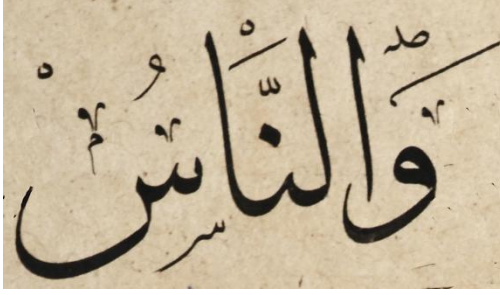 وَالنَّاسُ